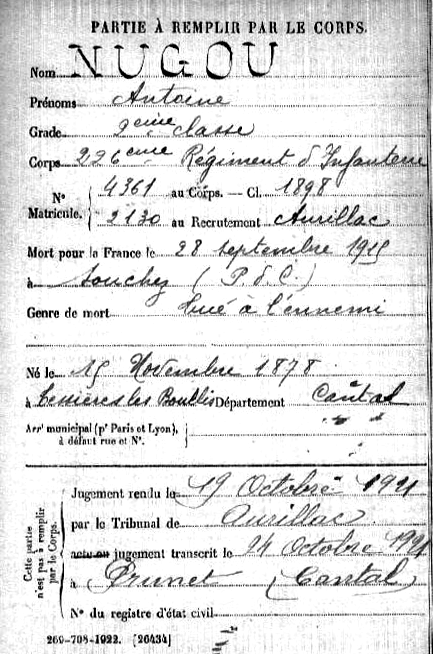 PARTIE À REMPLIR PAR LE CORPS.
Nom NUGOU
Prénoms Antoine
Grade 2eme classe
Corps 226eme Régiment d'Infanterie
N° Matricule. 4361 au Corps. — Cl. 1898
2130 au Recrutement Aurillac
Mort pour la France le 28 septembre 1915
à Souchez (P. d. C.)
Genre de mort Tué à l'ennemi
Né le 15 Novembre 1878
à les Département Cantal
Arrt municipal (pr Paris et Lyon), à défaut rue et N°.
Cette partie n'est pas à remplir par le Corps.
Jugement rendu le 19 Octobre 1921
par le Tribunal de Aurillac
acte ou jugement transcrit le 24 Octobre 1921
à Prunet (Cantal)
N° du registre d'état civil
269-708-1922. [26434]